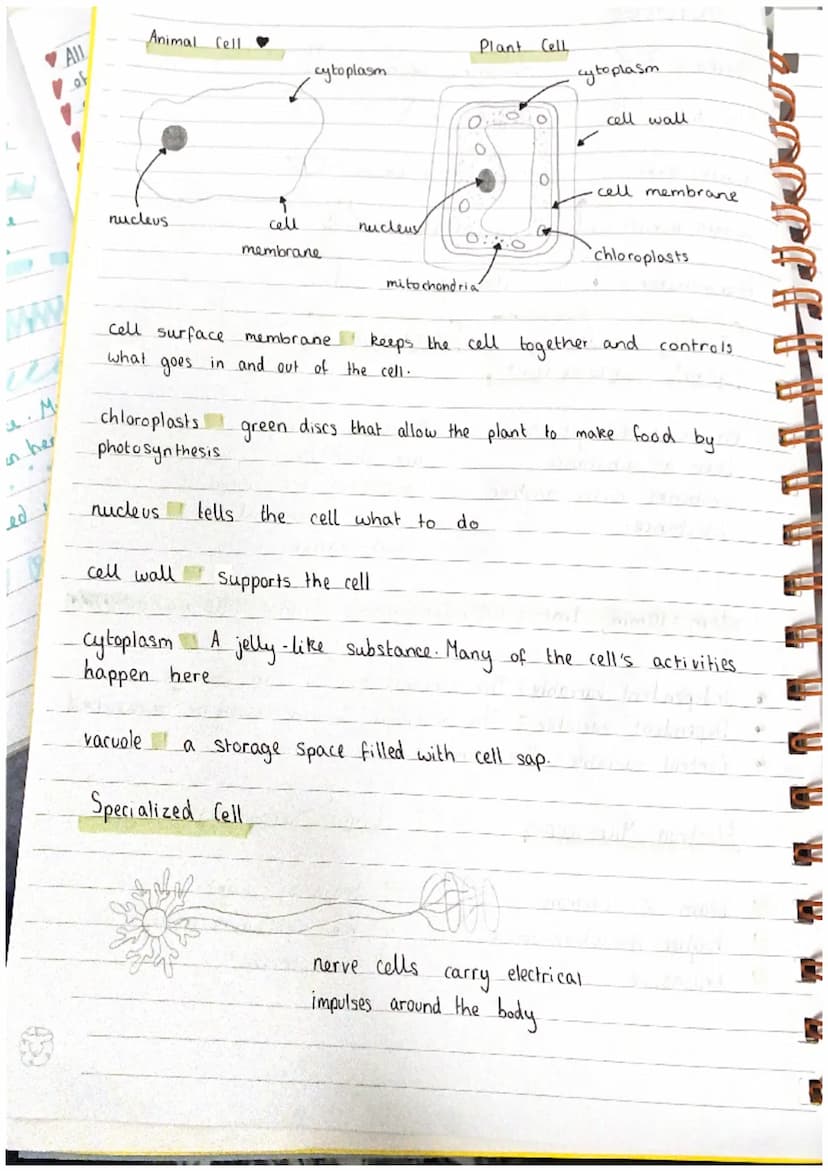 Animal Cell ♥
Plant Cell
cytoplasm
cytoplasm
cell wall
cell membrane
nucleus
cell
membrane
nucleus
chloroplasts
mitochondria
cell surface membrane keeps the cell together and controls
what goes in and out of the cell.
chloroplasts green discs that allow the plant to make food by
photosynthesis
nucleus tells the cell what to do
cell wall supports the cell
cytoplasm A jelly-like substance. Many of the cell's activities
happen here
vacuole a storage space filled with cell sap.
Specialized Cell
nerve cells carry electrical
impulses around the body
All
of